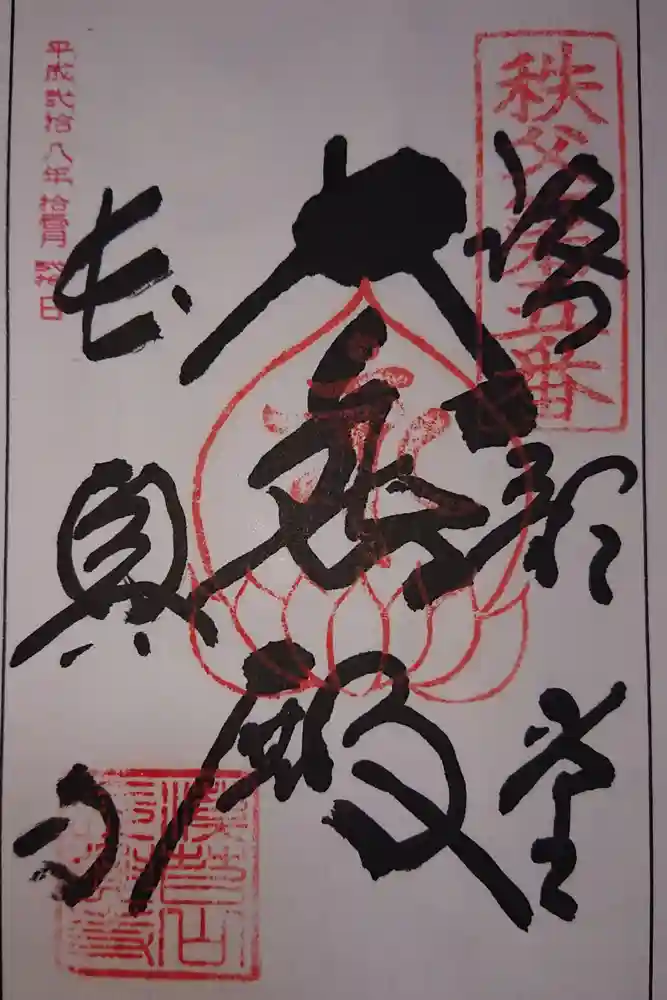 秩父第五番
語歌堂
大悲殿
長興寺
平成弐拾八年拾壹月 日